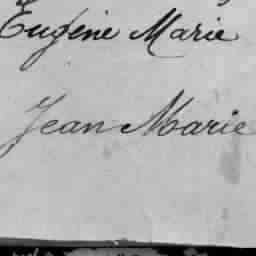 Eugène Marie
Jean Marie